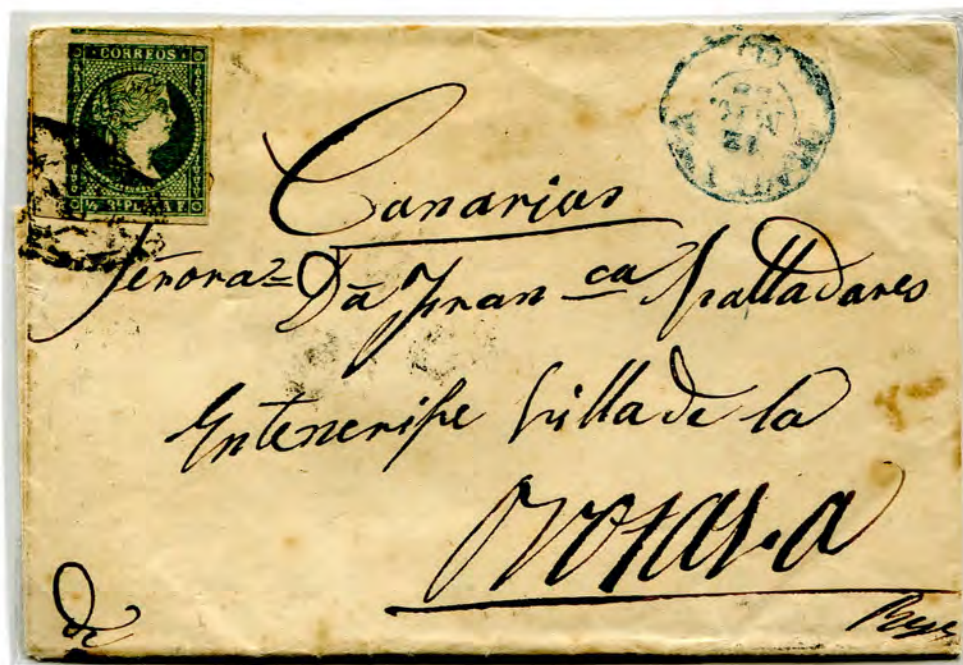 CORREOS
½ Rl PLATA F.
Canarias
Señora Da Fran ca Valladares
En tenerife Villa de la
orotaba